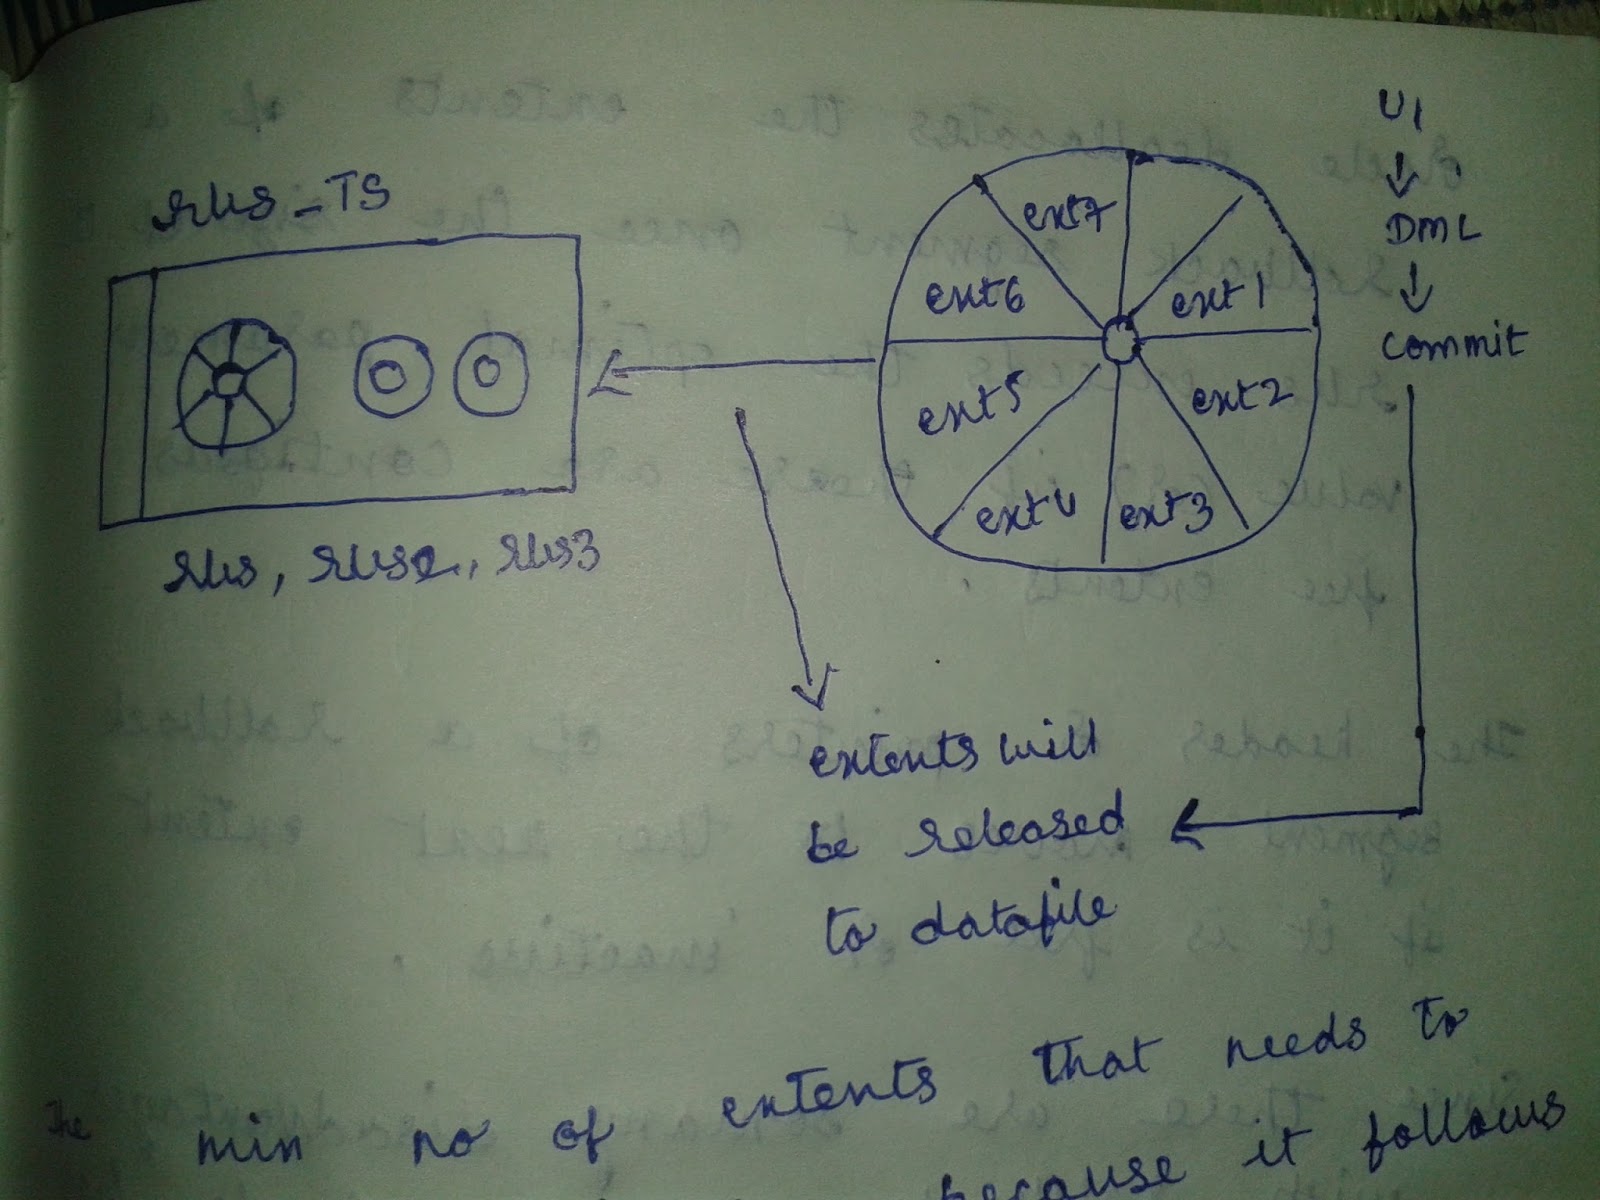 U1
DML
commit
rbs_TS
ext7
ext6
ext1
ext5
ext2
ext4
ext3
rbs, rbs2, rbs3
extents will
be released
to datafile
The min no of extents that needs to
because it follows